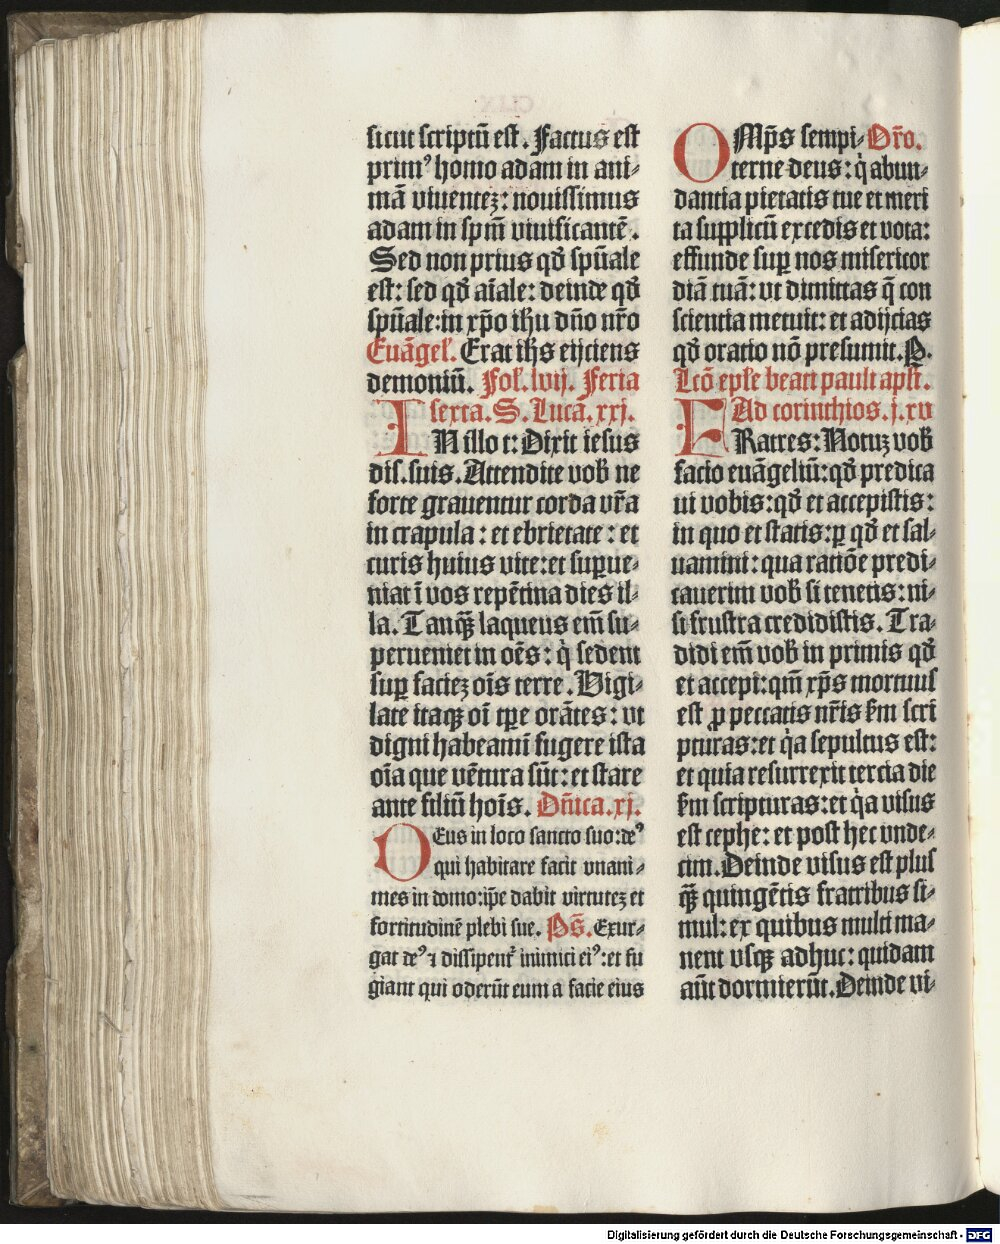 sicut scriptū est. Factus est
prim⁹ homo adam in ani⸗
mā viuentez: nouissimus
adam in spm̄ viuificantē.
Sed non prius qđ spūale
est: sed qđ aīale: deinde qđ
spūale: in xp̄o ihū dn̄o nr̄o
Euāgeł. Erat ihs̄ eijciens
demoniū. Foł. lvij. Feria
sexta. S. Lucā. xxj.
IN illo t: Dixit iesus
dis. suis. Attendite vob̄ ne
forte grauentur corda vr̄a
in crapula: et ebrietate: et
curis huius vite: et sup̱ue⸗
niat ī vos repētina dies il⸗
la. Tanqꝫ̄ laqueus em̄ su⸗
perueniet in oēs: q̇ sedent
sup̱ faciez oīs terre. Vigi⸗
late itaqꝫ oī tp̱e orātes: vt
digni habeamī fugere ista
oīa que vētura sūt: et stare
ante filiū hoīs. Dn̄ica. xj.
DEus in loco sancto suo: de⁹
qui habitare facit vnani⸗
mes in domo: ip̄e dabit virtutez et
fortitudinē plebi sue. Ps̄. Exur⸗
gat de⁹ ⁊ dissipent᷑ inimici ei⁹: et fu
giant qui oderūt eum a facie eius
OMp̄s sempi⸗ Or̄o.
terne deus: q̇ abun⸗
dantia pietatis tue et meri
ta supplicū excedis et vota:
effunde sup̱ nos misericor
diā tuā: vt dimittas q̄ con
scientia metuit: et adijcias
qđ oratio nō presumit. P̱.
Lcō ep̄łe beati pauli apłi.
Ad corinthios. j. xv
FRatres: Notuz vob̄
facio euāgeliū: qđ predica
ui vobis: qđ et accepistis:
in quo et statis: p̱ qđ et sal⸗
uamini: qua ratiōe predi⸗
cauerim vob̄ si tenetis: ni⸗
si frustra credidistis. Tra⸗
didi em̄ vob̄ in primis qđ
et accepi: qm̄ xp̄s mortuus
est ꝓ peccatis nr̄is s̄m scri
pturas: et q̇a sepultus est:
et quia resurrexit tercia die
s̄m scripturas: et q̇a visus
est cephe: et post hec vnde⸗
cim. Deinde visus est plus
qꝫ̄ quingētis fratribus si⸗
mul: ex quibus multi ma⸗
nent vsqꝫ adhuc: quidam
aūt dormierūt. Deinde vi⸗
Digitalisierung gefördert durch die Deutsche Forschungsgemeinschaft - DFG